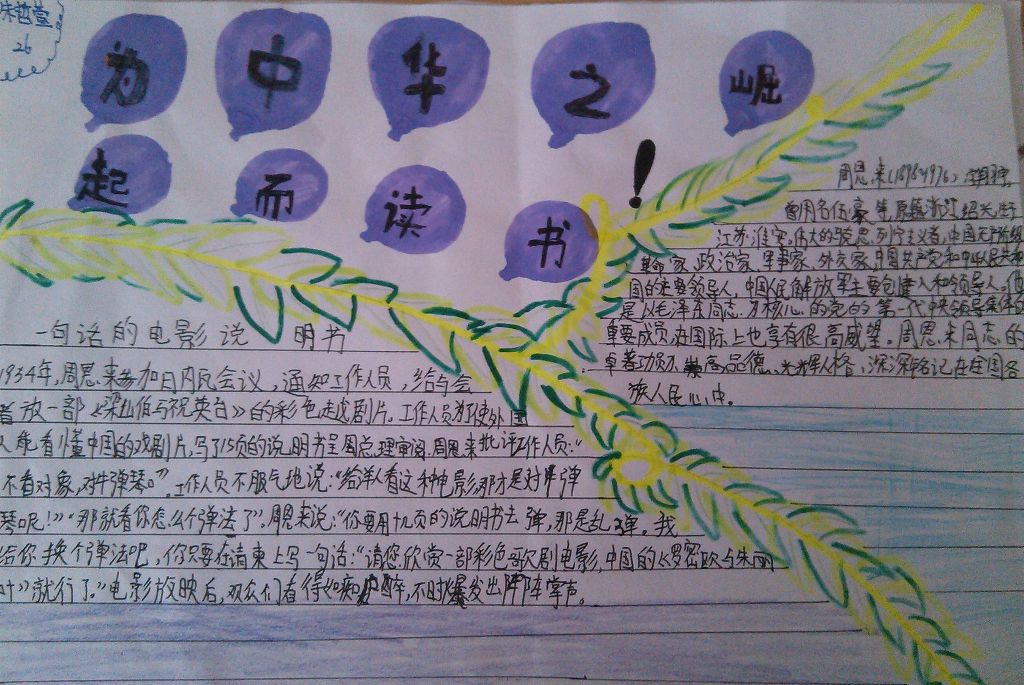 朱哲萱
26
为中华之崛
起而读书！
周恩来(1898-1976),字翔宇,
曾用名伍豪等,原籍浙江绍兴,生于
江苏淮安,伟大的马克思列宁主义者,中国无产阶级
革命家,政治家,军事家,外交家,中国共产党和中华人民共和
国的主要领导人,中国人民解放军主要创建人和领导人。他
是以毛泽东同志为核心的党的第一代中央领导集体的
重要成员,在国际上也享有很高威望。周恩来同志的
卓著功勋、崇高品德、光辉人格,深深铭记在全国各
族人民心中。
一句话的电影说明书
1934年,周恩来参加日内瓦会议,通知工作人员,给与会
者放一部《梁山伯与祝英台》的彩色越剧片。工作人员为使外国
人能看懂中国的戏剧片,写了15页的说明书呈周总理审阅。周恩来批评工作人员:“
不看对象,对牛弹琴。”工作人员不服气地说:“给洋人看这种电影,那才是对牛弹
琴呢!”“那就看你怎么个弹法了”。周恩来说:“你要用十几页的说明书去弹,那是乱弹。我
给你换个弹法吧,你只要在请柬上写一句话:“请您欣赏一部彩色歌剧电影,中国的《罗密欧与朱丽
叶》就行了。”电影放映后,观众们看得如痴如醉,不时爆发出阵阵掌声。